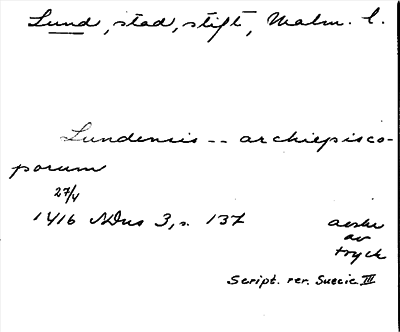 Lund, stad, stift, Malm. l.
Lundensis -- archiepisco-
porum
27/4
1416 NDns 3, s. 137
avskr
av
tryck
Script. rer. Suecic. III